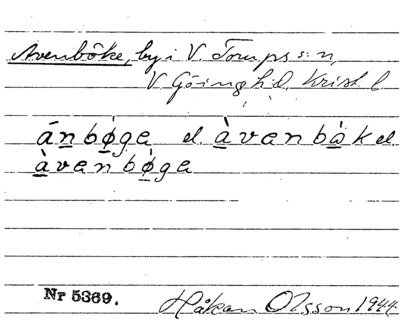 Avenböke, by i V. Torups s:n,
V Göinge hd. Krist. l.
ánbø̀ga el. àvanbàk el
àvanbø̀ga
Nr 5369. Håkan Olsson 1944.